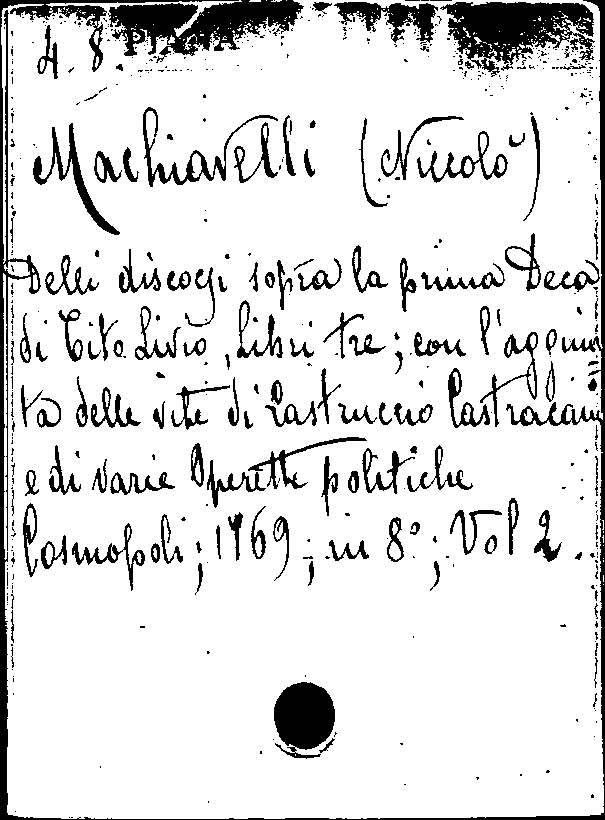 4. 8. PIANA
Machiavelli (Niccolò)
Delli discorsi sopra la prima Deca
di Tito Livio, Libri tre; con l'aggiun=
ta delle vite di Castruccio Castracani
e di varie Operette politiche
Cosmopoli; 1769; in 8°; Vol 2.